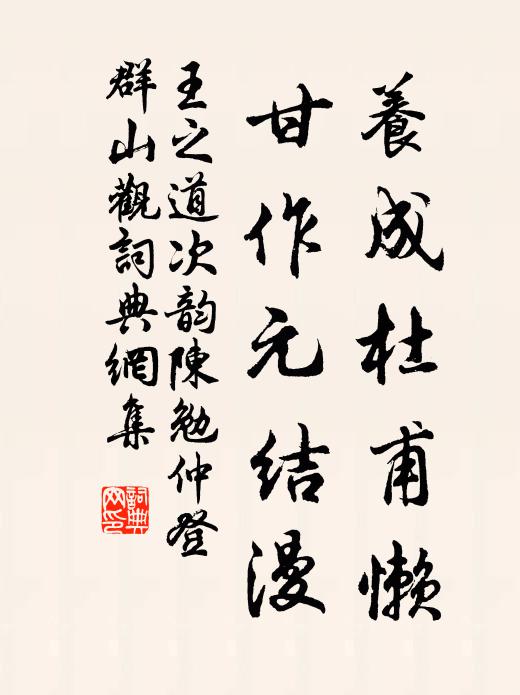 養成杜甫懶
甘作元结漫
王之道次韵陳勉仲登
群山觀詞典網集
詞典網印